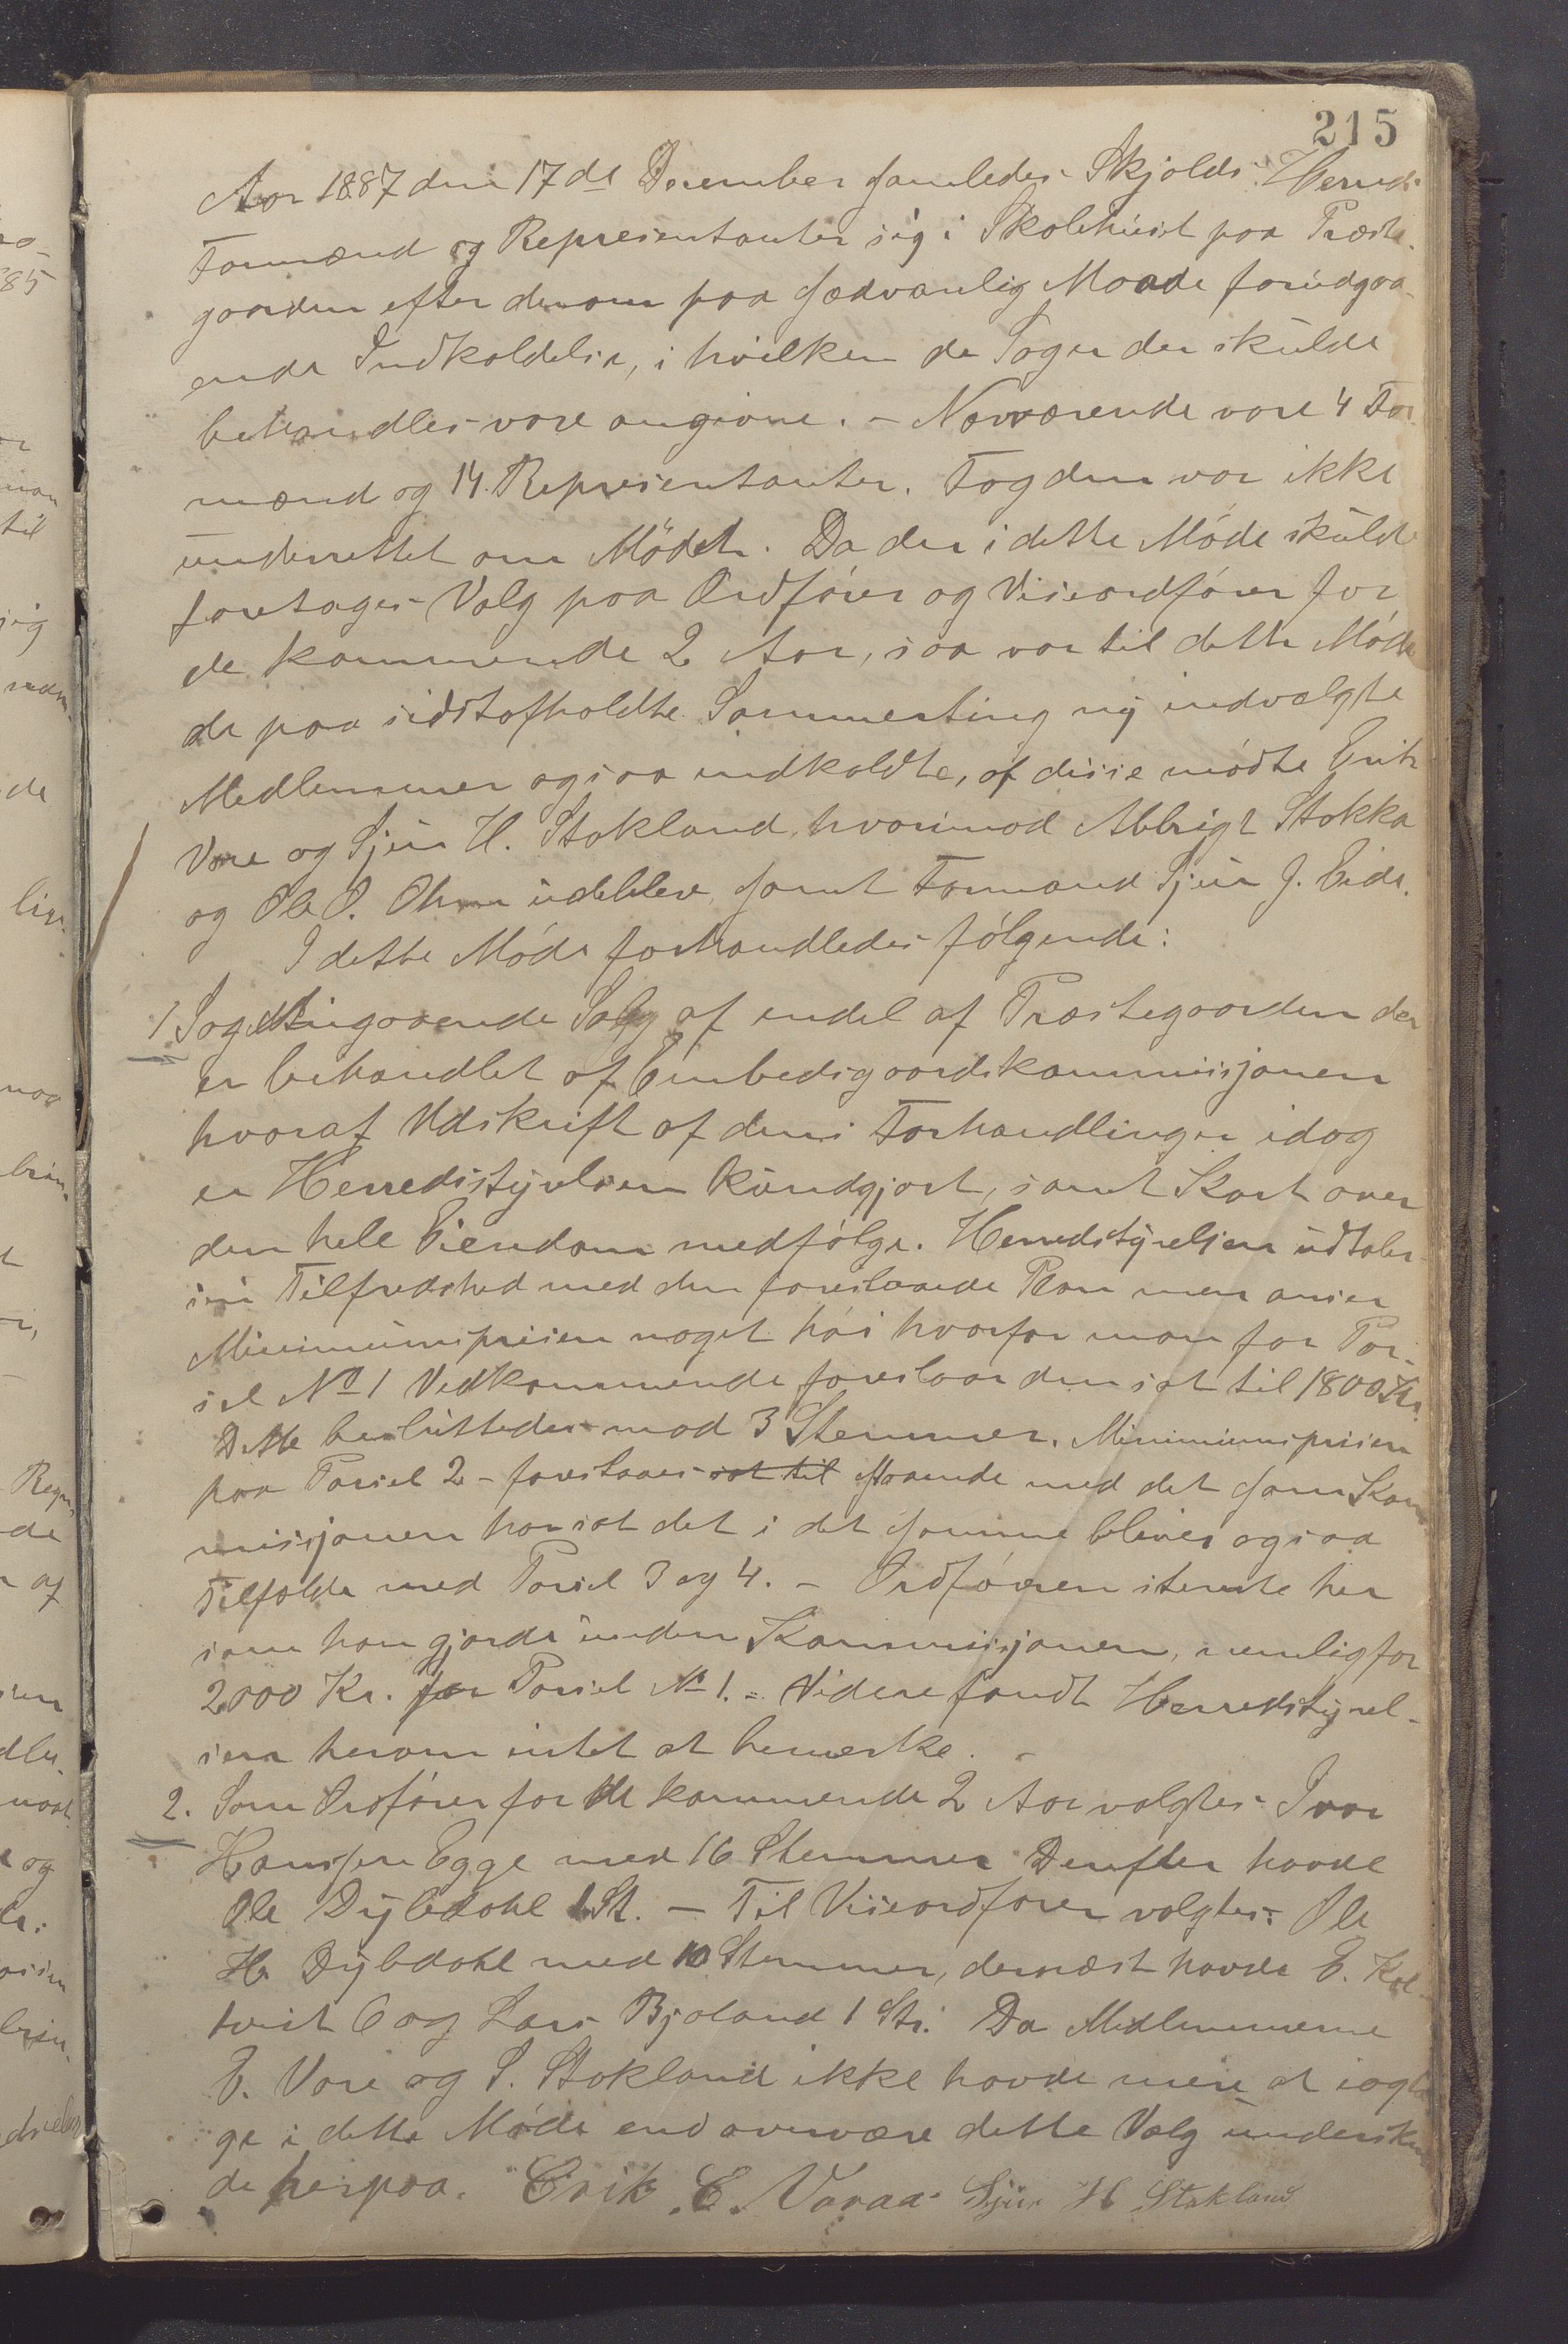 215
Aar 1887 den 17de December samledes Skjolds Herreds
Formænd og Repræsentanter sig i Skolehuset paa Præste-
gaarden efter derom paa sædvanlig Maade forudgaa-
ende Indkaldelse, i hvilken de Sager der skulde
behandles vare angivne. – Nærværende vare 4 For
mænd og 14 Repræsentanter. Fogden var ikke
underrettet om Mødet. Da der i dette Møde skulde
foretages Valg paa Ordfører og Viseordfører for
de kommende 2 Aar, saa var til dette Møde
de paa sidstafholdte Sommerting ny indvalgte
Medlemmer ogsaa indkaldte, af disse mødte Erik
Vore og Sjur H. Stokland, hvorimod Albrigt Stokka
og Ole O. udeblev, samt Formand Sjur J. Eide.
I dette Møde forhandledes følgende:
1 Sag angaaende Salg af endel af Præstegaarden der
er behandlet af Embedsgaardskommissjonen
hvoraf Udskrift af dens Forhandlinger idag
er Herredsstyrelsen kundgjort, samt Kart over
den hele Eiendom medfølge. Herredstyrelsen udtaler
sin Tilfredshed med den foreslaaede Plan men anser
Minimumsprisen noget høi hvorfor man for Par-
sel No 1 Vedkommende foreslaar den sat til 1800 Kr.
Dette besluttedes mod 3 Stemmer. Minimumsprisen
paa Parsel 2 – foreslaaes sat til staaende med det som Kom
missjonen har sat det i det samme blives ogsaa
Tilfælde med Parsel 3 og 4. – Ordføreren stemte her
som han gjorde inden Kommissjonen, nemlig for
2000 Kr. for Parsel No 1. – Videre fandt Herredstyrel-
sen herom intet at bemærke. –
2. Som Ordfører for de kommende 2 Aar valgtes Ivar
Hanssen Egge med 16 Stemmer Derefter havde
Ole Dybdahl 1 St. – Til Viseordfører valgtes Ole
H. Dybdahl med 10 Stemmer, dernæst havde E. Kal-
tveit 6 og Lars Bjoland 1 St. Da Medlemmerne
E. Vore og S. Stokland ikke havde mere at iagta
ge i dette Møde end overvære dette Valg underskrev
de herpaa. Erik E. Varaa Sjur H Stakland